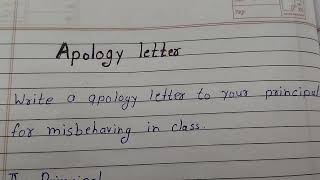 Apology letter
Write a apology letter to your principal
for misbehaving in class.
Principal